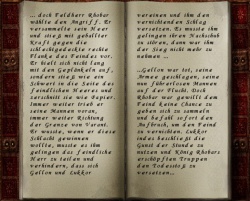 ... doch Feldherr Rhobar
wählte den Angriff. Er
versammelte sein Heer
und stieß mit geballter
Kraft gegen die
schlechtgedeckte rechte
Flanke des Feindes vor.
Er hielt sich nicht lang
mit den Geplänkeln auf,
sondern stieß wie ein
Schwert in die Seite des
feindlichen Heeres und
zerschnitt sie wie Papier.
Immer weiter trieb er
seine Mannen voran,
immer weiter Richtung
der Grenze von Varant.
Er wusste, wenn er diese
Schlacht gewinnen
wollte, musste es ihm
gelingen das feindliche
Heer zu teilen und
verhindern, dass sich
Gallon und Lukkor
vereinen und ihm den
vernichtenden Schlag
versetzen. Es musste ihm
gelingen ihren Nachschub
zu stören, dann war ihm
der Sieg nicht mehr zu
nehmen ...
..Gallon war tot, seine
Armee geschlagen, seine
nun führerlosen Mannen
auf der Flucht. Doch
Rhobar war gewillt dem
Feind keine Chance zu
geben sich zu sammeln
und befahl sofort den
Aufbruch, um den Feind
zu vernichten. Lukkor
indes beschließt die
Gunst der Stunde zu
nutzen und König Rhobars
erschöpften Truppen
den Todesstoß zu
versetzen...